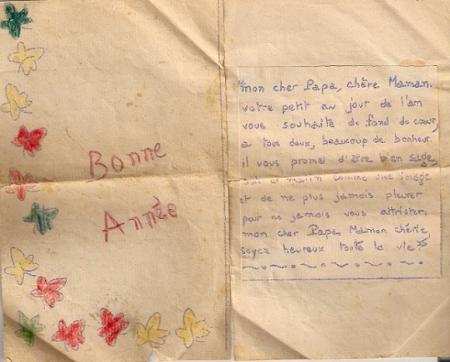 Bonne
Année
mon cher Papa, chère Maman.
votre petit au jour de l'an
vous souhaite du fond du cœur,
à tous deux, beaucoup de bonheur.
il vous promet d'être bien sage
comme une image
et de ne plus jamais pleurer
pour ne jamais vous attrister,
mon cher Papa, Maman chérie,
soyez heureux toute la vie